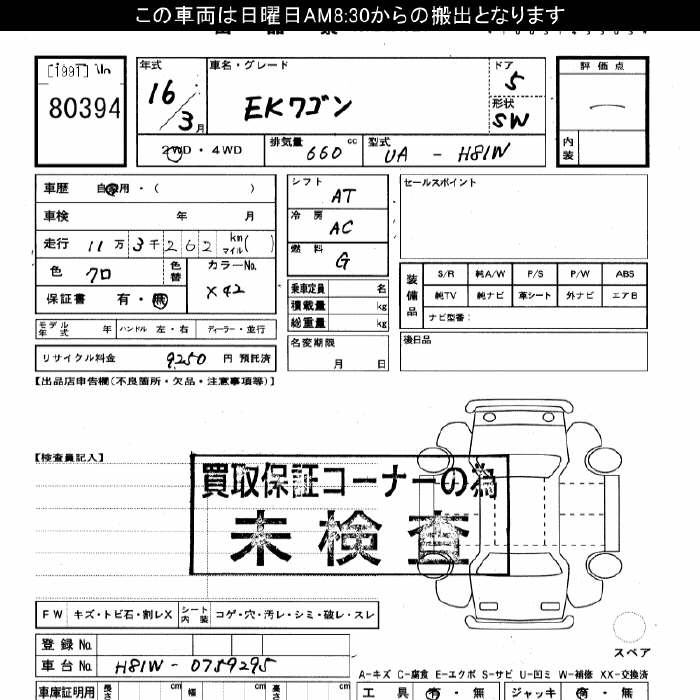 この車両は日曜日AM8:30からの搬出となります
80394
年式
16
3月
車名・グレード
EKワゴン
ドア
5
形状
SW
評価点
内装
2WD・4WD
排気量
660 cc
型式
UA - H81W
車歴 自家用・( )
車検 年 月
走行 11万3千262 km マイル( )
色 クロ
色替
カラーNo.
X42
保証書 有・無
モデル年式 年 ハンドル 左・右 ディーラー・並行
リサイクル料金 9250 円 預託済
シフト
AT
冷房
AC
燃料
G
乗車定員 名
積載量 kg
総重量 kg
名変期限
月 日
セールスポイント
装備品
S/R 純A/W P/S P/W ABS
純TV 純ナビ 革シート 外ナビ エアB
ナビ型番:
後日品
【出品店申告欄(不良箇所・欠品・注意事項等)】
【検査員記入】
買取保証コーナーの為
未検査
FW キズ・トビ石・割レX シート内装 コゲ・穴・汚レ・シミ・破レ・スレ
スペア
登録No.
車台No. H81W - 0759295
A-キズ C-腐食 E-エクボ S-サビ U-凹ミ W-補修 XX-交換済
車庫証明用 長さ cm 幅 cm 高さ cm
工具 有・無 ジャッキ 有・無